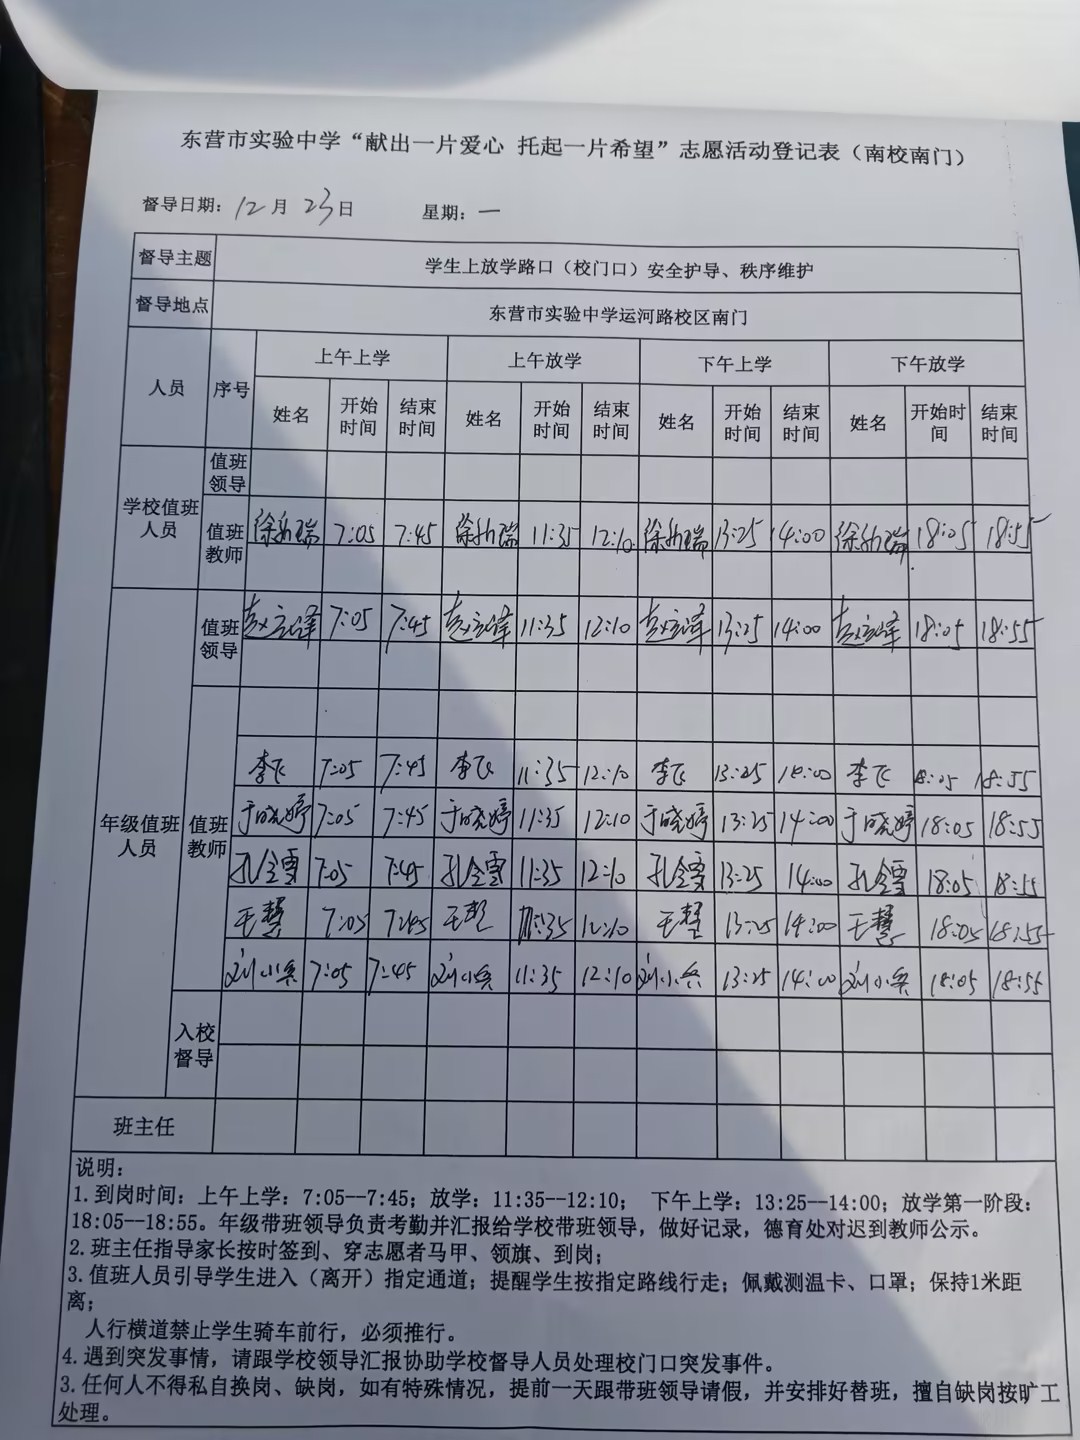 东营市实验中学“献出一片爱心 托起一片希望”志愿活动登记表（南校南门）
督导日期：12月 23日 星期：一
督导主题 学生上放学路口（校门口）安全护导、秩序维护
督导地点 东营市实验中学运河路校区南门
人员 序号 上午上学 上午放学 下午上学 下午放学
姓名 开始时间 结束时间 姓名 开始时间 结束时间 姓名 开始时间 结束时间 姓名 开始时间 结束时间
学校值班人员 值班领导
值班教师 7:05 7:45 11:35 12:10 13:25 14:00 18:05 18:55
年级值班人员 值班领导 赵立泽 7:05 7:45 赵立泽 11:35 12:10 赵立泽 13:25 14:00 赵立泽 18:05 18:55
值班教师
李飞 7:05 7:45 李飞 11:35 12:10 李飞 13:25 14:00 李飞 18:05 18:55
于晓婷 7:05 7:45 于晓婷 11:35 12:10 于晓婷 13:25 14:00 于晓婷 18:05 18:55
孔令雪 7:05 7:45 孔令雪 11:35 12:10 孔令雪 13:25 14:00 孔令雪 18:05 18:55
王慧 7:05 7:45 王慧 11:35 12:10 王慧 13:25 14:00 王慧 18:05 18:55
刘小兵 7:05 7:45 刘小兵 11:35 12:10 刘小兵 13:25 14:00 刘小兵 18:05 18:55
入校督导
班主任
说明：
1.到岗时间：上午上学：7:05--7:45；放学：11:35--12:10； 下午上学：13:25--14:00；放学第一阶段：
18:05--18:55。年级带班领导负责考勤并汇报给学校带班领导，做好记录，德育处对迟到教师公示。
2.班主任指导家长按时签到、穿志愿者马甲、领旗、到岗；
3.值班人员引导学生进入（离开）指定通道；提醒学生按指定路线行走；佩戴测温卡、口罩；保持1米距
离；
人行横道禁止学生骑车前行，必须推行。
4.遇到突发事情，请跟学校领导汇报协助学校督导人员处理校门口突发事件。
3.任何人不得私自换岗、缺岗，如有特殊情况，提前一天跟带班领导请假，并安排好替班，擅自缺岗按旷工
处理。